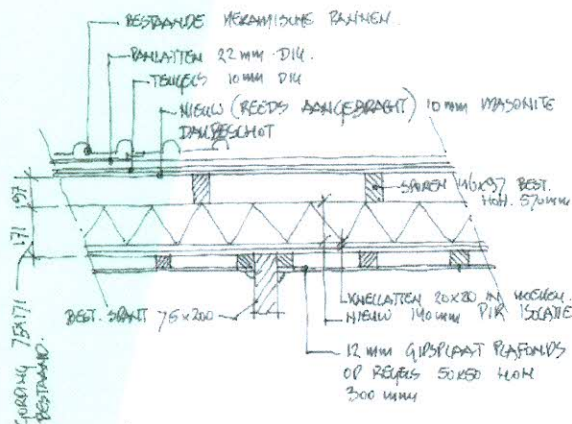 BESTAANDE KERAMISCHE PANNEN.
PANLATTEN 22 mm DIK.
TENGELS 10 mm DIK
NIEUW (REEDS AANGEBRACHT) 10 mm MASONITE
DAKBESCHOT
197
171
SPOREN 46x97 BEST.
HOH. 570 mm
GORDING 75x171
BESTAAND.
BEST. SPANT 75x200
KNELLATTEN 20x20 IN HOEKEN.
NIEUW 140 mm PIR ISOLATIE
12 mm GIPSPLAAT PLAFONDS
OP REGELS 50x50 HOH
300 mm